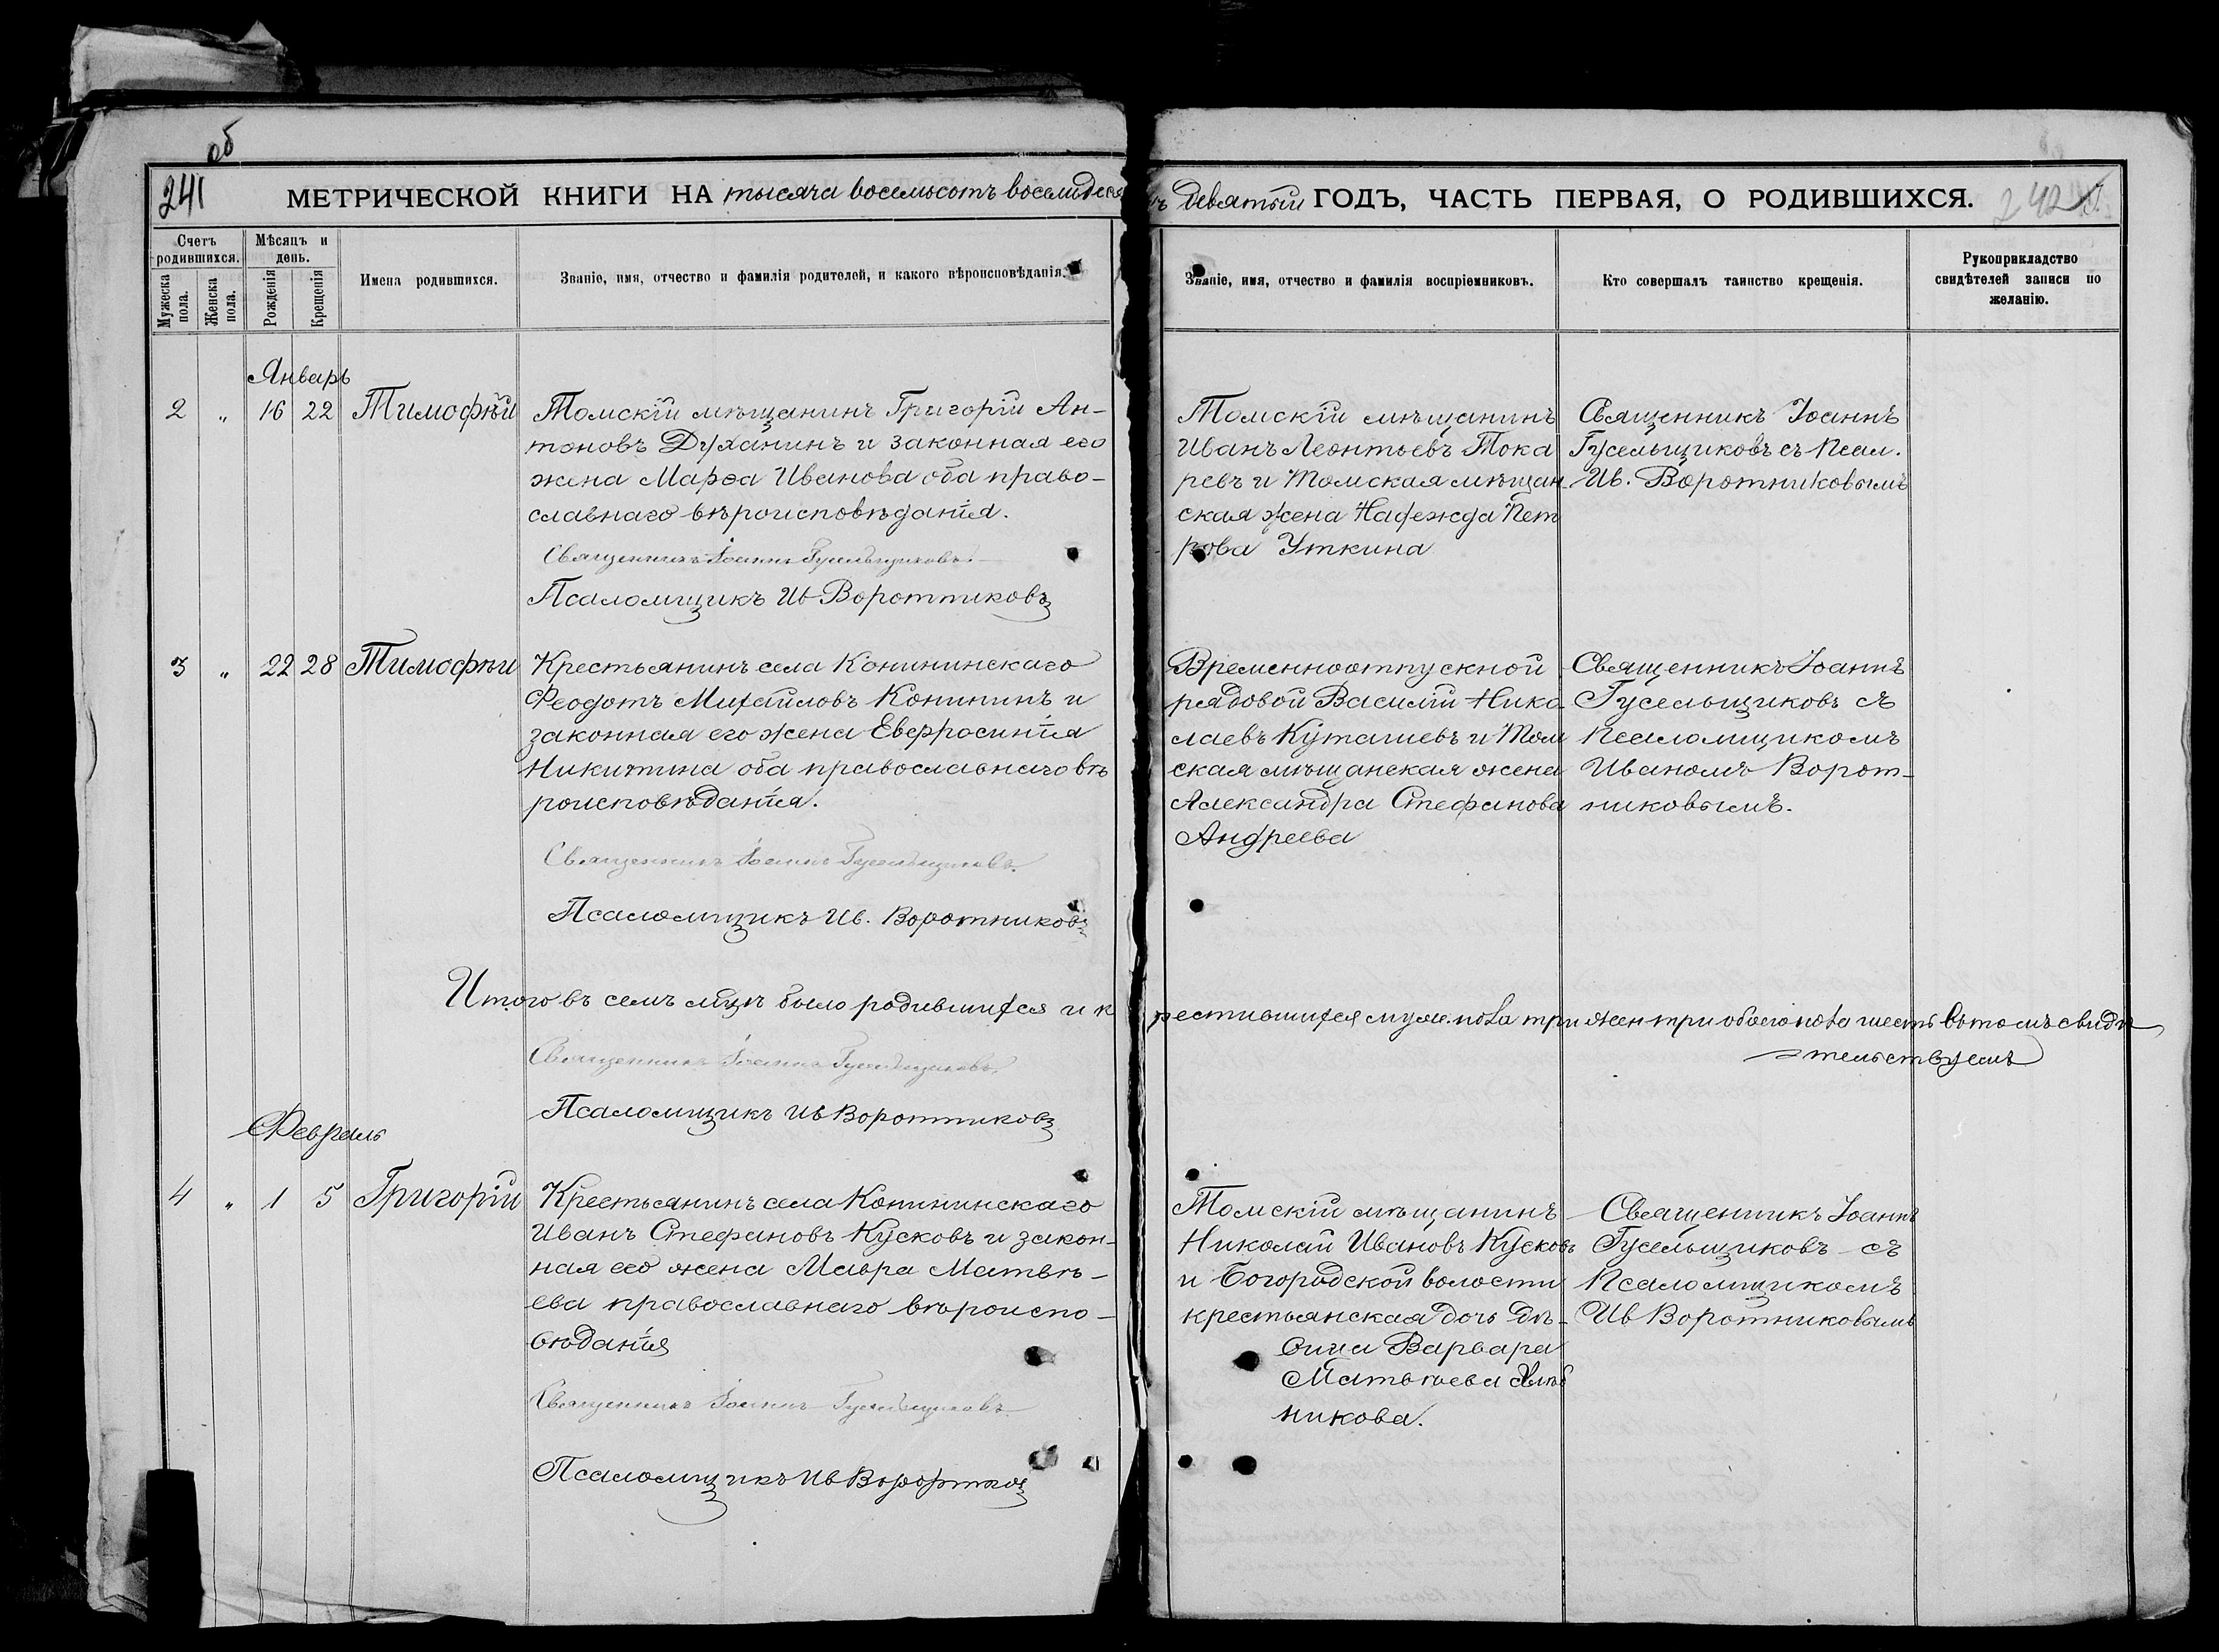 об
241
МЕТРИЧЕСКОЙ КНИГИ НА тысяча восемьсотъ восемьдеся
тъ девятый ГОДЪ, ЧАСТЬ ПЕРВАЯ, О РОДИВШИХСЯ.
242
Счетъ родившихся.
Мужеска пола.
Женска пола.
Мѣсяцъ и день.
Рожденія
Крещенія
Имена родившихся.
Званіе, имя, отчество и фамилія родителей, и какого вѣроисповѣданія.
Званіе, имя, отчество и фамилія воспріемниковъ.
Кто совершалъ таинство крещенія.
Рукоприкладство свидѣтелей записи по желанію.
Январь
2 " 16 22 Тимофѣй
Томскій мѣщанинъ Григорій Ан-
тоновъ Духанинъ и законная его
жена Марѳа Иванова оба право-
славнаго вѣроисповѣданія.
Священникъ Іоаннъ Гусельщиковъ
Псаломщикъ Ив Воротниковъ
Томскій мѣщанинъ
Иванъ Леонтьевъ Тока
ревъ и Томская мѣщан
ская жена Надежда Пет
рова Уткина
Священникъ Іоаннъ
Гусельщиковъ съ Псал.
Ив. Воротниковымъ
3 " 22 28 Тимофѣй
Крестьянинъ села Конининскаго
Феодотъ Михайловъ Конининъ и
законная его жена Евфросинія
Никитина оба православнаго вѣ
роисповѣданія.
Священникъ Іоаннъ Гусельщиковъ.
Псаломщикъ Ив. Воротниковъ
Временноотпускной
рядовой Василій Нико
лаевъ Куташевъ и Том
ская мѣщанская жена
Александра Стефанова
Андреева
Священникъ Іоаннъ
Гусельщиковъ съ
Псаломщикомъ
Иваномъ Ворот-
никовымъ.
Итого въ семъ мцѣ было родившихся и к
рестившихся муж. пола три жен три обоего пола шесть въ томъ свидѣ
тельствуемъ
Священникъ Іоаннъ Гусельщиковъ
Псаломщикъ Ив Воротниковъ
Февраль
4 " 1 5 Григорій
Крестьянинъ села Конининскаго
Иванъ Стефановъ Кусковъ и закон-
ная его жена Мавра Матвѣ-
ева православнаго вѣроиспо-
вѣданія
Священникъ Іоаннъ Гусельщиковъ
Псаломщикъ Ив
Томскій мѣщанинъ
Николай Ивановъ Кусковъ
и Богородской волости
крестьянская дочь дѣ-
вица Варвара
Матвѣева
никова.
Священникъ Іоаннъ
Гусельщиковъ съ
Псаломщикомъ
Ив Воротниковымъ